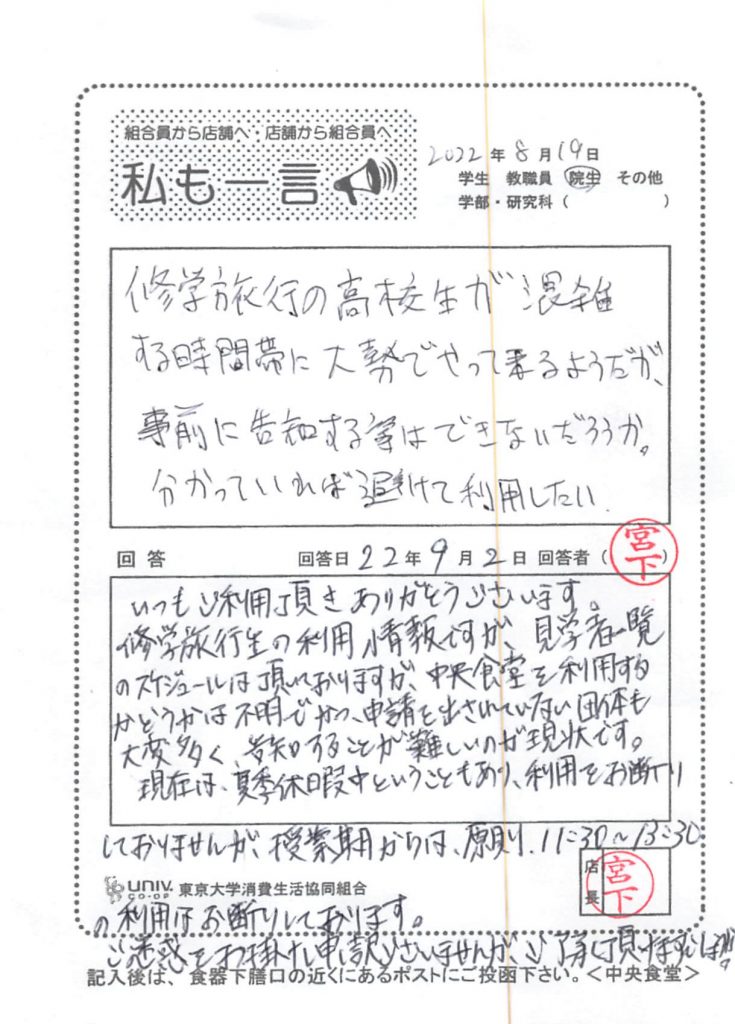 組合員から店舗へ・店舗から組合員へ
私も一言
2022年8月19日
学生 教職員 院生 その他
学部・研究科（ ）
修学旅行の高校生が混雑
する時間帯に大勢でやって来るようだが、
事前に告知する等はできないだろうか。
分かっていれば避けて利用したい.
回答 回答日 22年9月2日 回答者（宮下）
いつもご利用頂きありがとうございます。
修学旅行生の利用情報ですが、見学者一覧
のスケジュールは頂いておりますが、中央食堂を利用する
かどうかは不明でかつ、申請を出されていない団体も
大変多く、告知することが難しいのが現状です。
現在は、夏季休暇中ということもあり、利用をお断り
しておりませんが、授業期からは、原則、11:30〜13:30
UNIV. CO-OP 東京大学消費生活協同組合
店長 宮下
の利用はお断りしております。
ご迷惑をお掛けし申し訳ございませんが、ご了承頂けますれば。
記入後は、食器下膳口の近くにあるポストにご投函下さい。＜中央食堂＞